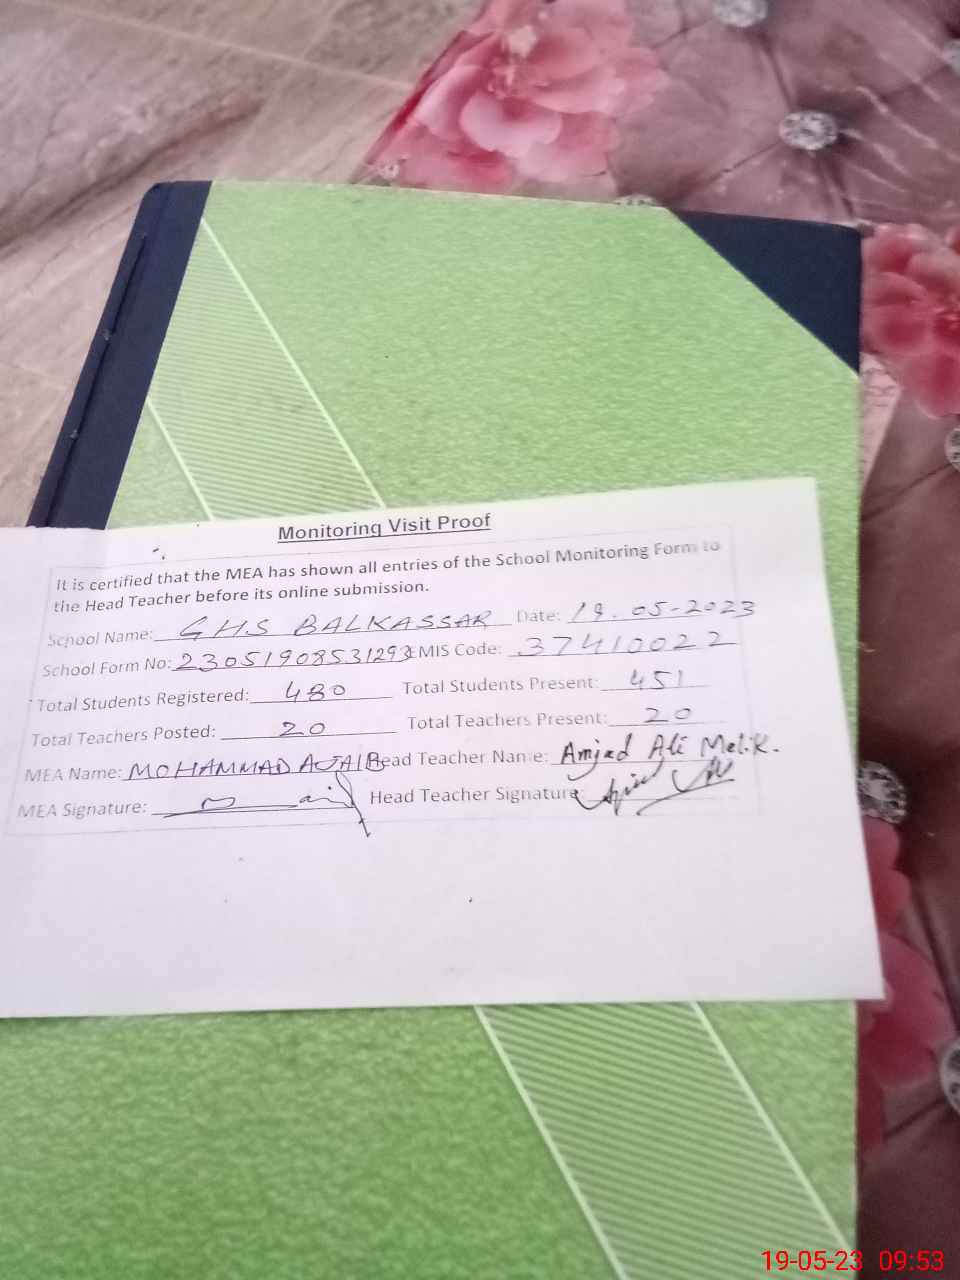 Monitoring Visit Proof
It is certified that the MEA has shown all entries of the School Monitoring Form to
the Head Teacher before its online submission.
School Name: GHS BALKASSAR Date: 19.05-2023
School Form No: 23051908531293 EMIS Code: 37410022
Total Students Registered: 480 Total Students Present: 451
Total Teachers Posted: 20 Total Teachers Present: 20
MEA Name: MOHAMMAD AJAIB Head Teacher Name: Amjad Ali Malik.
MEA Signature: Head Teacher Signature:
19-05-23 09:53